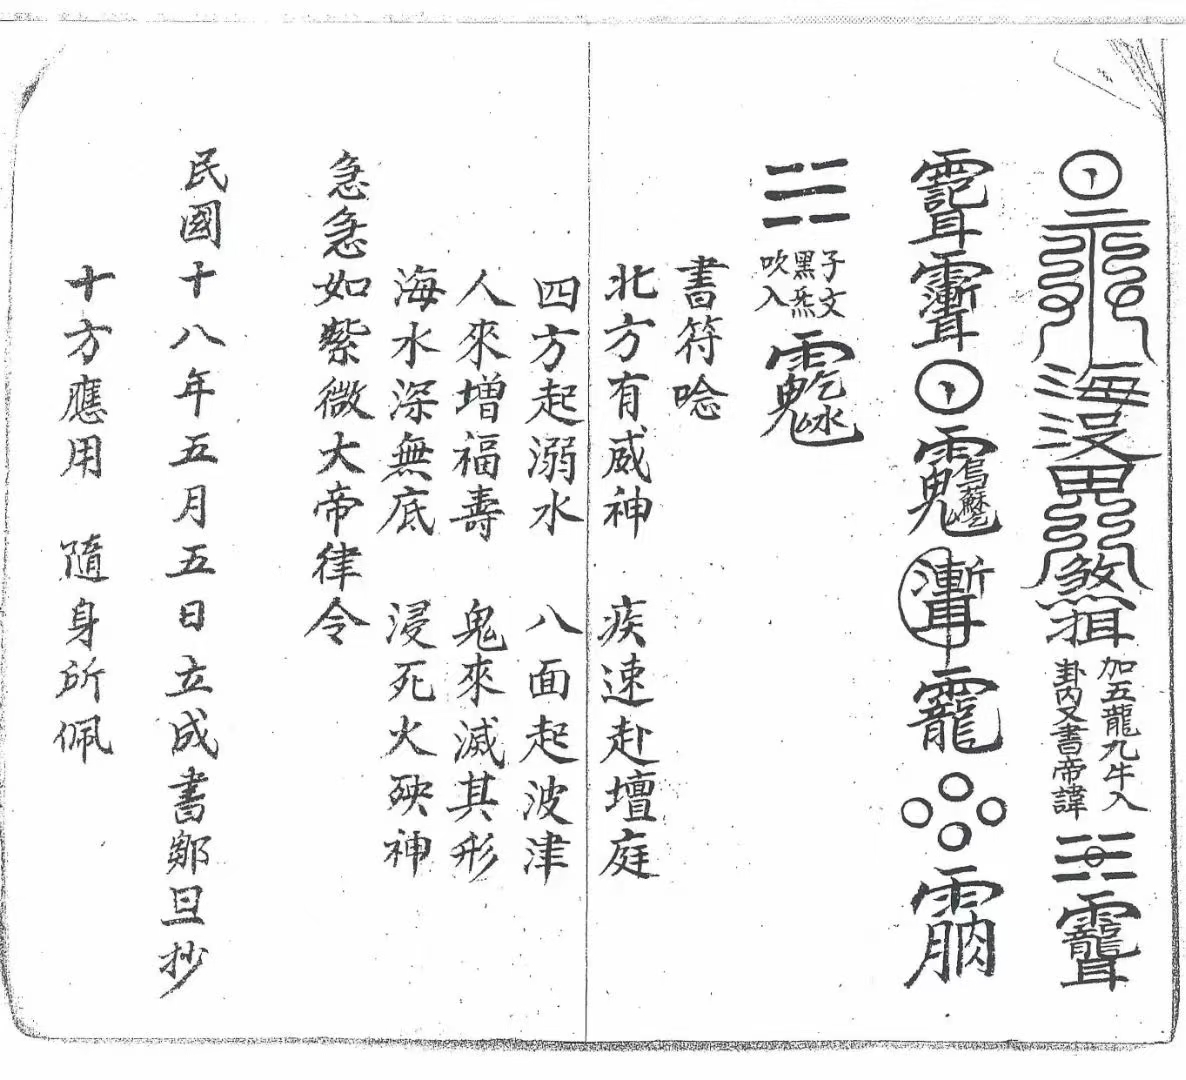 海
加五龍九牛入
卦内又書帝諱
子文
黑炁
吹入
書符唸
北方有威神 疾速赴壇庭
四方起溺水 八面起波津
人來增福壽 鬼來滅其形
海水深無底 浸死火殃神
急急如紫微大帝律令
民國十八年五月五日立成書鄭旦抄
十方應用 隨身所佩